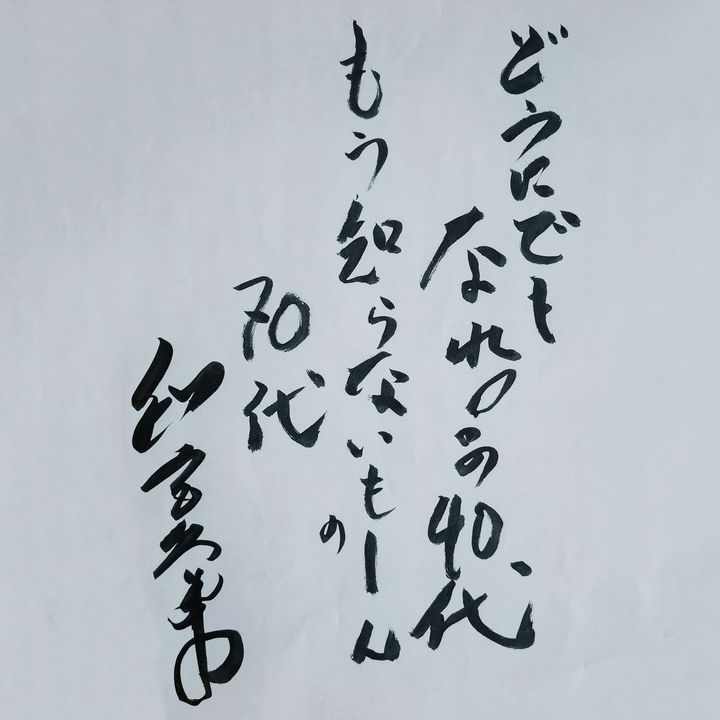 どうにでも
なれのこの40代、
もう知らないもーん
の
70代